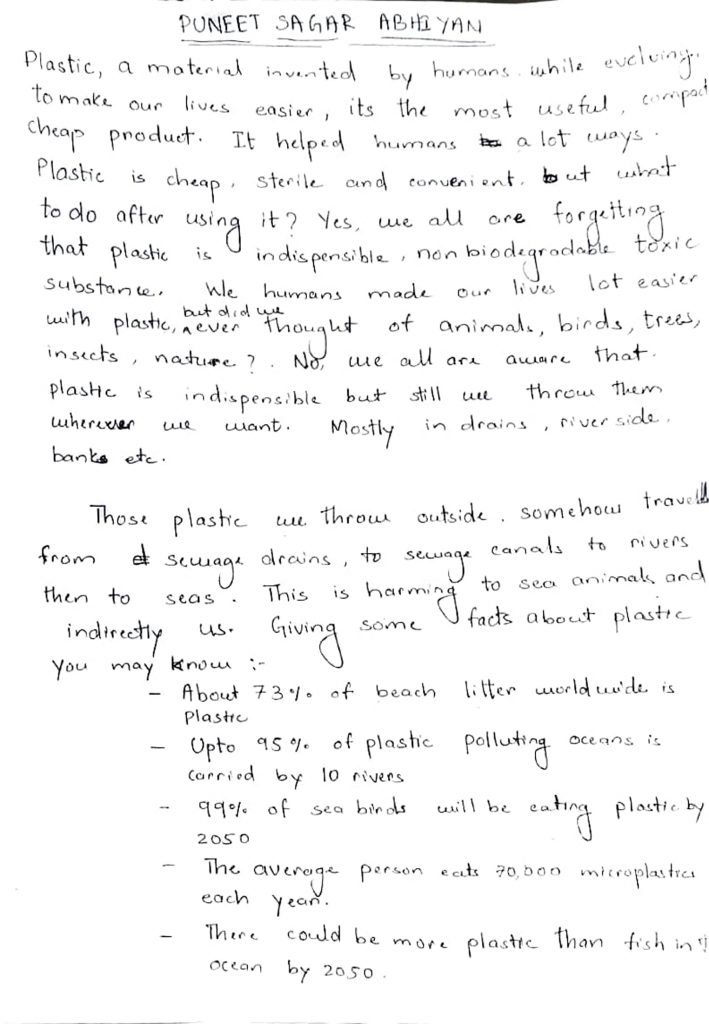 PUNEET SAGAR ABHIYAN
Plastic, a material invented by humans while evolving.
to make our lives easier, its the most useful, compact
cheap product. It helped humans a lot ways.
Plastic is cheap, sterile and convenient. but what
to do after using it? Yes, we all are forgetting
that plastic is indispensible, non biodegradable toxic
substance. We humans made our lives lot easier
with plastic, but did we never thought of animals, birds, trees,
insects, nature?. No, we all are aware that.
plastic is indispensible but still we throw them
wherever we want. Mostly in drains, river side.
banks etc.
Those plastic we throw outside. somehow travel
from sewage drains, to sewage canals to rivers
then to seas. This is harming to sea animals and
indirectly us. Giving some facts about plastic
you may know :-
- About 73% of beach litter worldwide is
Plastic
- Upto 95% of plastic polluting oceans is
carried by 10 rivers
- 99% of sea birds will be eating plastic by
2050
- The average person eats 70,000 microplastics
each year.
- There could be more plastic than fish in
ocean by 2050.